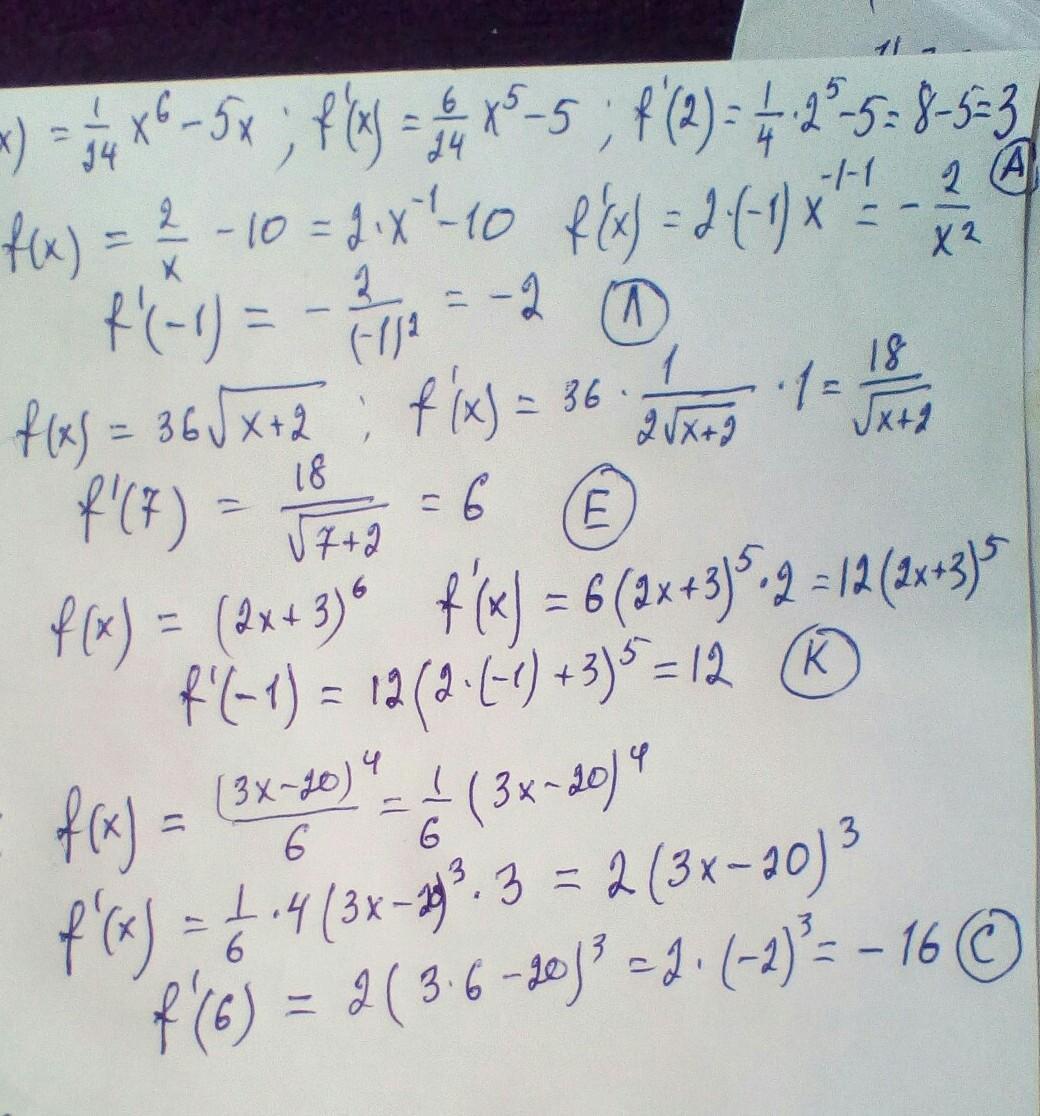 x) = 1/24 x⁶ - 5x ; f'(x) = 6/24 x⁵ - 5 ; f'(2) = 1/4 · 2⁵ - 5 = 8 - 5 = 3
А
f(x) = 2/x - 10 = 2·x⁻¹ - 10 f'(x) = 2·(-1) x⁻¹⁻¹ = - 2/x²
f'(-1) = - 2/(-1)² = -2 Л
f(x) = 36√(x+2) ; f'(x) = 36 · 1/(2√(x+2)) · 1 = 18/√(x+2)
f'(7) = 18/√(7+2) = 6 Е
f(x) = (2x+3)⁶ f'(x) = 6(2x+3)⁵·2 = 12(2x+3)⁵
f'(-1) = 12(2·(-1)+3)⁵ = 12 К
f(x) = (3x-20)⁴/6 = 1/6 (3x-20)⁴
f'(x) = 1/6 · 4(3x-20)³ · 3 = 2(3x-20)³
f'(6) = 2(3·6-20)³ = 2·(-2)³ = -16 С